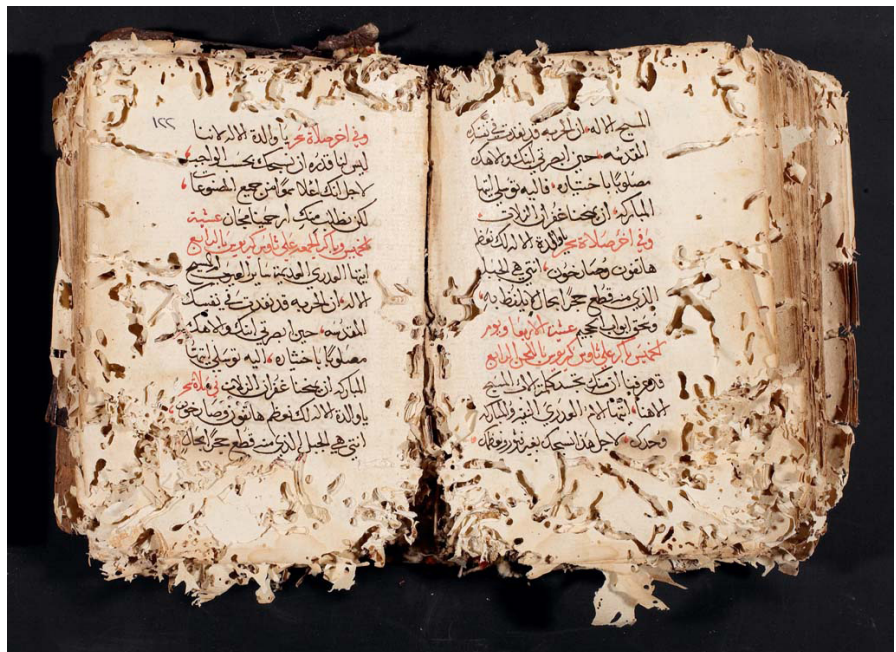 المسيح الاله، ان الحربه قد نفدت في نفسك
المقدسه، حين ابصرتي ابنك والاهك
مصلوبا باختياره، فاليه توسلي ايتها
المباركه، ان يمنحنا غفران الزلات،
وفي اخر صلاة سحر يا والدة الاله لك نعظم
هاتفون وصارخون، انتي هي الجبل
الذي منه قطع حجرا بحال لا يلفظ به
وسحق ابواب الجحيم عشية الاربعا ويوم
الخميس باكر علي ثاوس كيريوس باللحن الرابع
قد عرفنا ان منك تجسد كلمة الاب المسيح
الاهنا، ايتها الام العدري النقيه والمباركه
وحدك، لاجل هذا نسبحك بغير فتور ونعظمك
١٢٢
وفي اخر صلاة سحر يا والدة الاله اننا
ليس لنا قدره ان نسبحك بحسب الواجب،
لاجل انك اعلا سموا من جميع المصنوعات،
لكن نطلب منك ارحمينا مجان عشية
الخميس وباكر الجمعه علي ثاوس كيريوس بالرابع
ايتها العدري العديمة العيب ام المسيح
الاله، ان الحربه قد نفدت في نفسك
المقدسه، حين ابصرتي ابنك والاهك
مصلوبا باختياره، اليه توسلي ايتها
المباركه ان يمنحنا غفران الزلات في صلاة سحر
يا والدة الاله لك نعظم هاتفون وصارخون،
انتي هي الجبل الذي منه قطع حجرا بحال